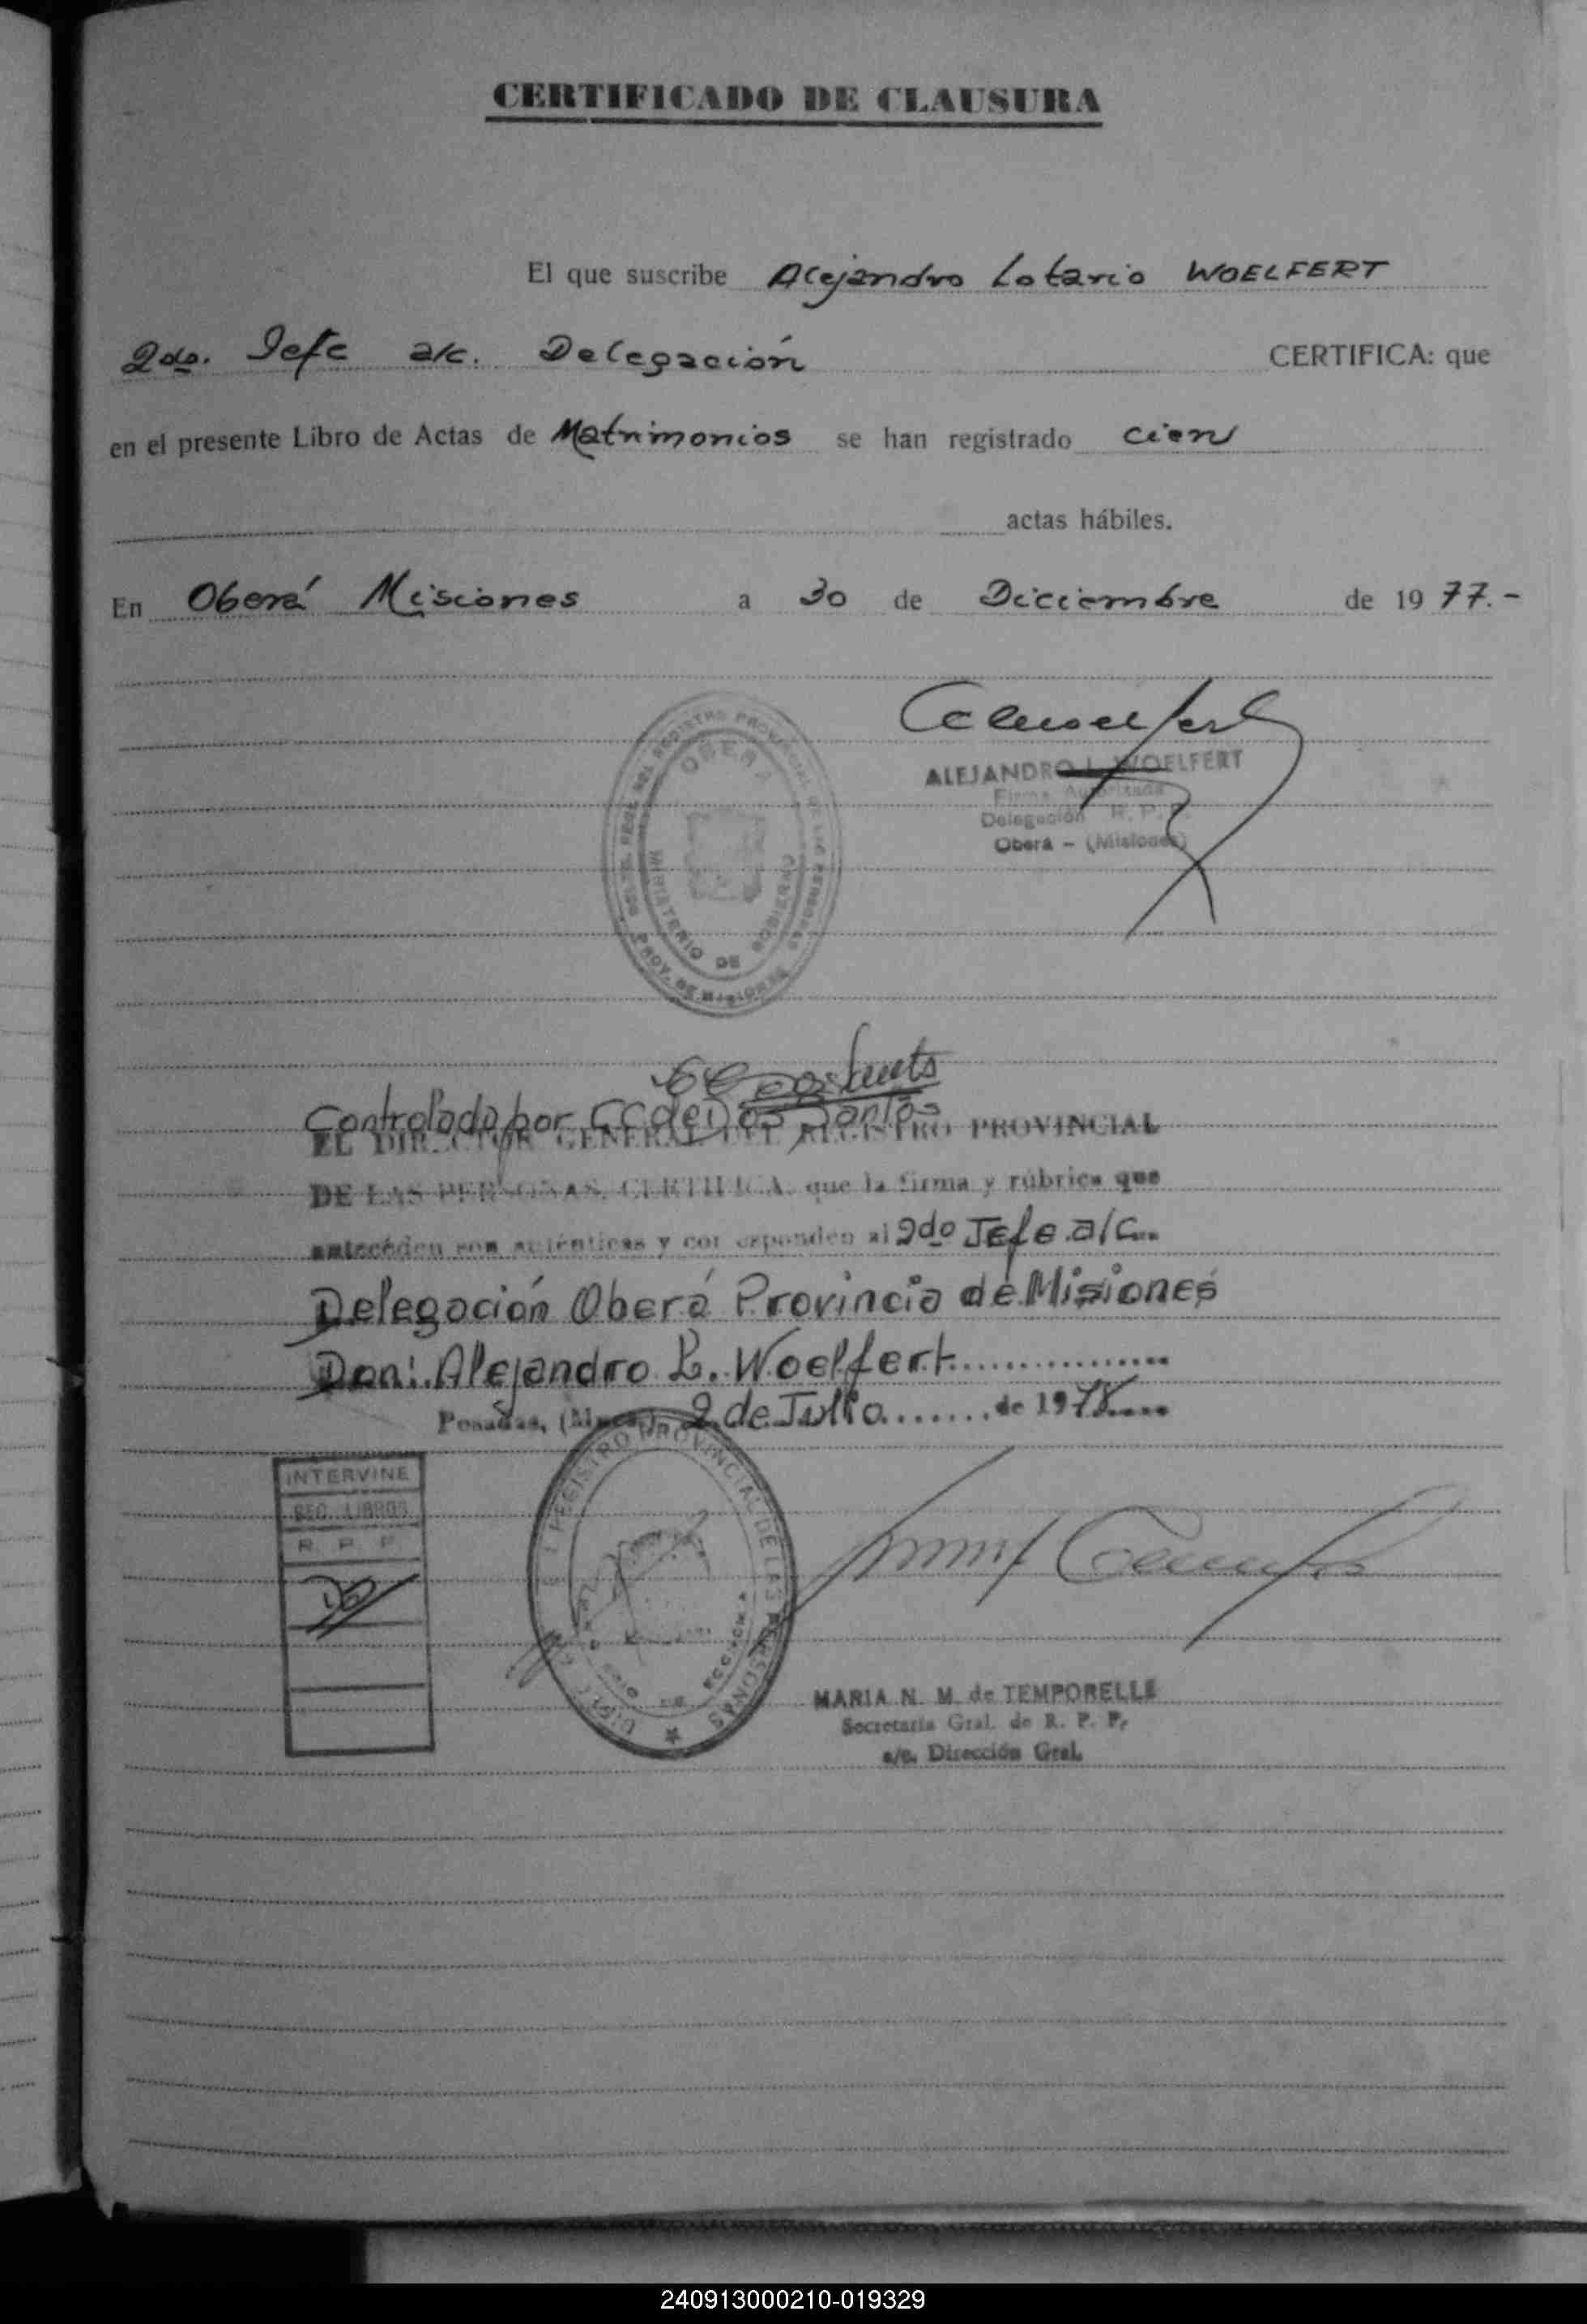 CERTIFICADO DE CLAUSURA
El que suscribe Alejandro Lotario WOELFERT
2do. Jefe a/c. Delegación CERTIFICA: que
en el presente Libro de Actas de Matrimonios se han registrado cien
actas hábiles.
En Oberá Misiones a 30 de Diciembre de 1977.-
OBERA
MINISTERIO DE GOBIERNO
PROV. DE MISIONES
ALEJANDRO L. WOELFERT
Firma Autorizada
Delegación R. P. P.
Oberá - (Misiones)
Controlado por CC de Dos Santos
EL DIRECTOR GENERAL DEL REGISTRO PROVINCIAL
DE LAS PERSONAS, CERTIFICA que la firma y rúbrica que
anteceden son auténticas y corresponden al 2do Jefe a/c...
Delegación Oberá Provincia de Misiones
Don: Alejandro L. Woelfert
Posadas, (Mnes.), 2 de Julio de 1978
INTERVINE
SEC. LIBROS
R. P. P.
REGISTRO PROVINCIAL DE LAS PERSONAS
MARIA N. M. de TEMPORELLI
Secretaria Gral. de R. P. P.
a/c. Dirección Gral.
240913000210-019329